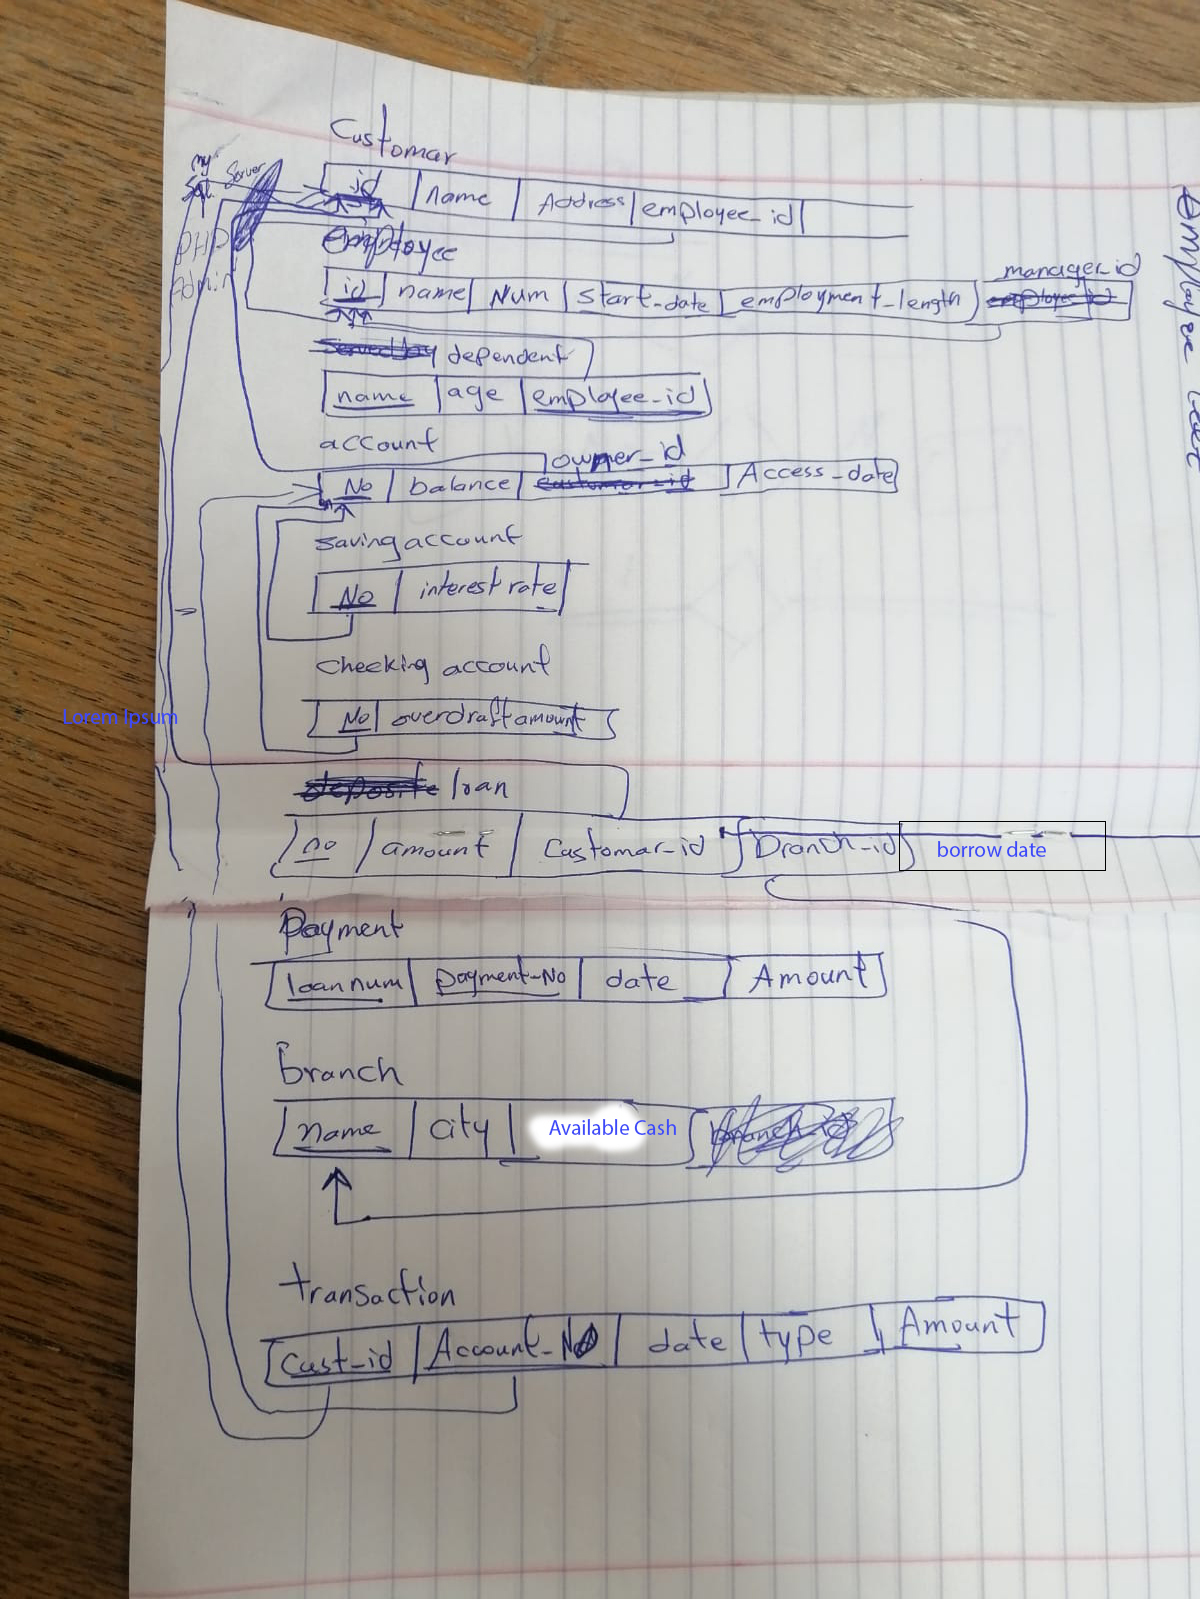 Customar
my
Sql Server
id name Address employee_id
PHP
Admin
employee
manager_id
id name Num start-date employment_length
dependent
name age employee_id
account
owner_id
No balance Access-date
saving account
No interest rate
checking account
No overdraft amount
Lorem Ipsum
loan
no amount Customar-id branch-id borrow date
Payment
loan num payment-No date Amount
branch
name city Available Cash
transaction
Cust-id Account-No date type Amount
employee